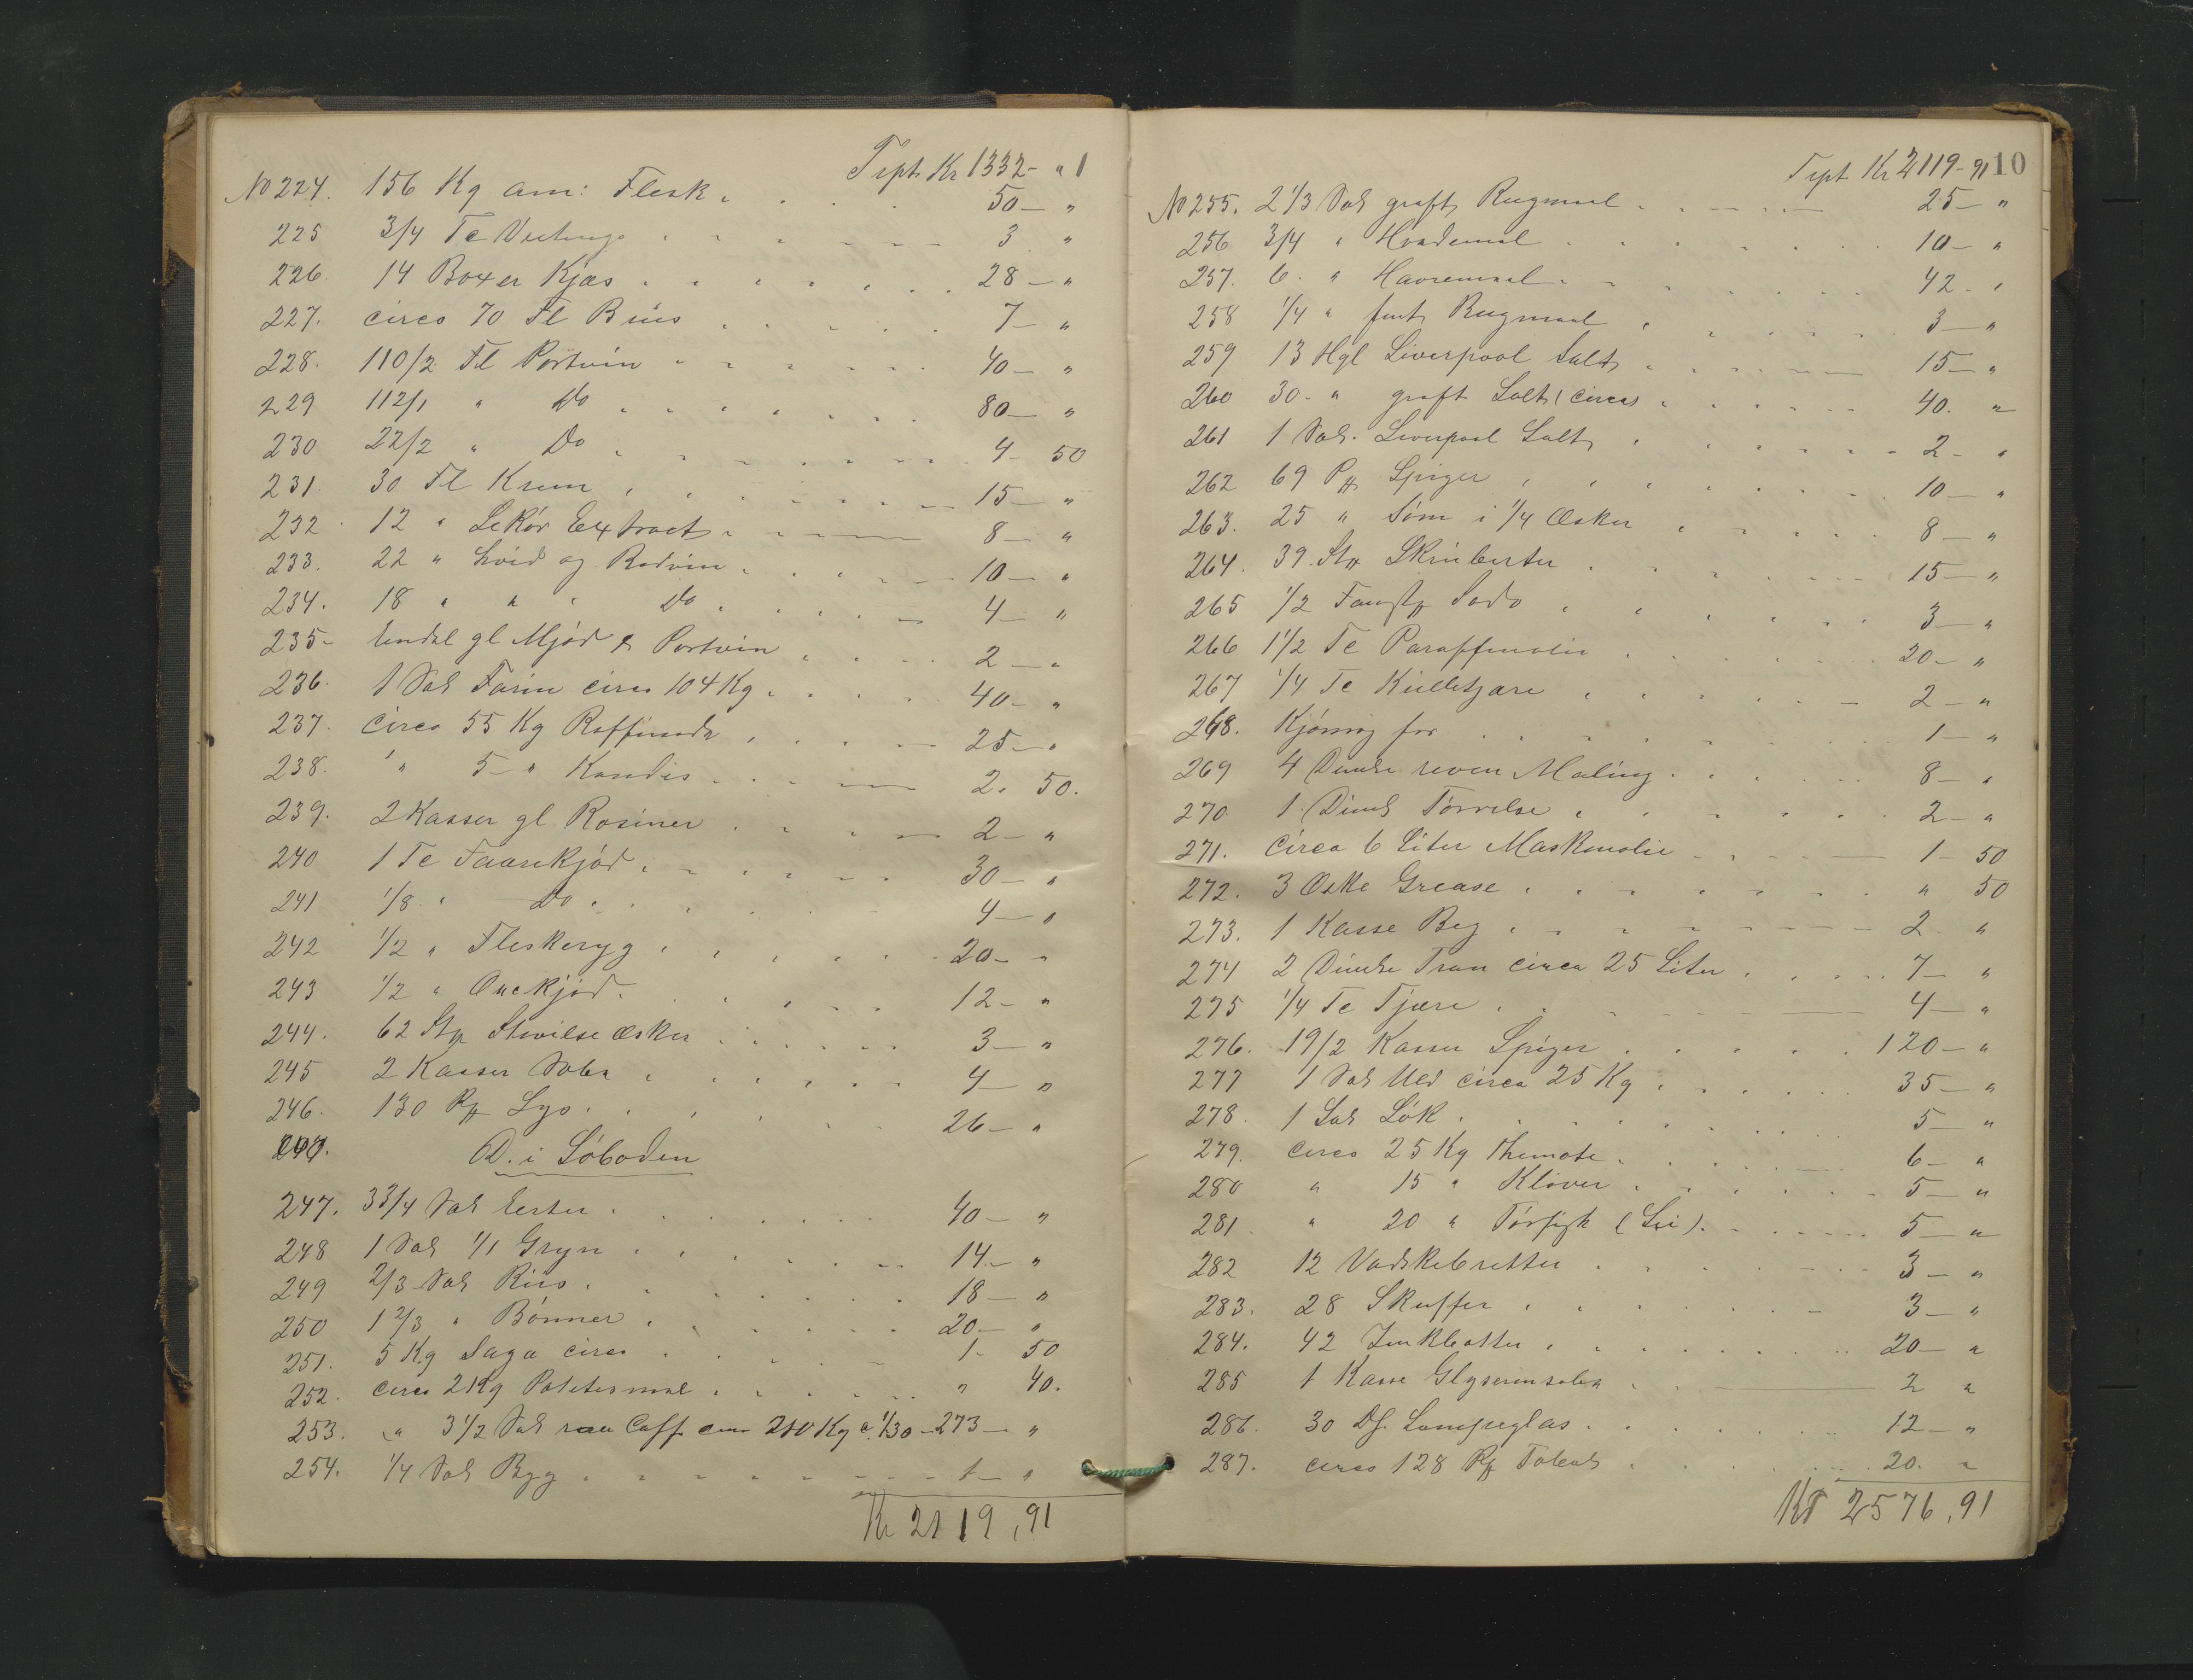 Trpt Kr 1332- " 1
No 224. 156 Kg am: Flesk . 50 — "
225 3/4 Te 3 "
226. 14 Boxer Kjæs 28 — "
227. circa 70 Fl Brus 7 — "
228. 110/2 Fl Portvin 40 — "
229 112/1 " Do 80 — "
230 22/2 " Do 4 - 50
231. 30 Fl Krum 15 — "
232. 12 " Lekör Extract 8 — "
233. 22 " hvid og Rödvin 10 — "
234. 18 " " " Do 4 — "
235- Endel gl Mjöd & Portvin 2 — "
236. 1 Sæk Farin circa 104 Kg 40 - "
237. Circa 55 Kg Raffinade 25 — "
238. " 5 - " Kandis 2. 50.
239. 2 Kasser gl Rosiner 2 — "
240 1 Te Faarekjöd 30 — "
241 1/8 " Do 4 — "
242 1/2 " Fleskeryg 20 - "
243 1/2 " Oxekjöd. 12 - "
244. 62 Stk Stivelse æsker 3 — "
245 2 Kasser Sæbe 4 — "
246. 130 Pk Lys. 26 — "
D. i Söboden
247. 3 3/4 Sæk Erter 40 — "
248 1 Sæk 1/1 Gryn 14. — "
249 2/3 Sæk Riis. 18 — "
250 1 2/3 " Bönner 20 — "
251. 5 Kg Saga circa 1 - 50
252. circa 2 Kg Potetesmel " 40.
253. " 3 1/2 Sæk raa Caff. circa 210 Kg a 1/30 - 273 — "
254. 1/4 Sæk Byg 1 — "
Kr 2119,91
Trpt Kr 2119-91 10
No 255. 2 1/3 Sæk groft Rugmeel 25 — "
256 3/4 " Hvedemel 10 — "
257. 6. " Havremeel 42 - "
258 1/4 " fint Rugmeel 3 — "
259 13 Hgl Liverpool Salt 15 — "
260 30 - " groft Salt (circa) 40. "
261 1 Sæk. Liverpool Salt 2 - "
262 69 Pk Spiger 10 — "
263. 25 " Söm i 1/4 Æsker 8 — "
264. 39. Stk Skrubørster 15 — "
265 1/2 Soda 3 — "
266 1 1/2 Te Paraffinolie 20 - "
267 1/4 Te Kultjære 2 — "
268. Kjönrög for 1 — "
269 4 Dunke reven Maling. 8 - "
270. 1 Dunk Törrelse 2 - "
271. Circa 6 Liter Maskinolie 1 - 50
272. 3 Æske Grease " 50
273. 1 Kasse Beg 2. "
274 2 Dunke Tran circa 25 Liter 7 — "
275 1/4 Te Tjære 4 — "
276. 19/2 Kasser Spiger 120 — "
277 1 Sæk Uld circa 25 Kg 35 — "
278. 1 Sæk Lök 5 — "
279. circa 25 Kg Themote 6 - "
280 " 15 " Klöver 5 — "
281 " 20 " Törfisk (Sei) 5 — "
282 12 Vadskebretter 3 — "
283. 28 Skuffer 3 — "
284. 42 Zinkbøtter 20 — "
285 1 Kasse Glyserinsæbe 2 "
286. 30 Df. Lampeglas. 12 — "
287. circa 128 Pk Tobak 20. "
Kr 2576,91